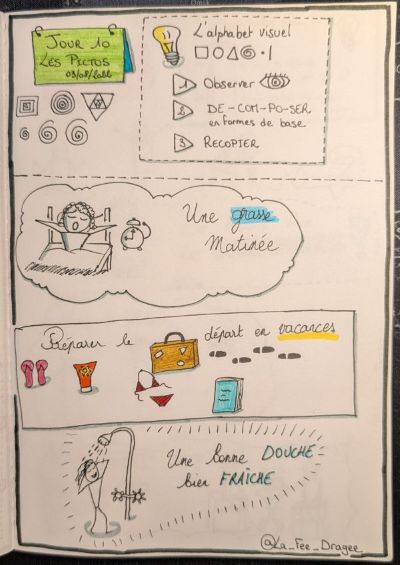 JOUR 10
LES PICTOS
03/08/2022
L'alphabet visuel
1 Observer
2 DE-COM-PO-SER
en formes de base
3 RECOPIER
Une grasse
Matinée
Préparer le départ en vacances
Une bonne DOUCHE
bien FRAÎCHE
@La_Fee_Dragee